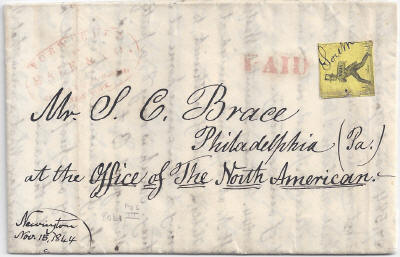 PAID
South
Mr. S. C. Brace
Philadelphia (Pa.)
at the Office of The North American.
Newington
Nov. 15, 1844